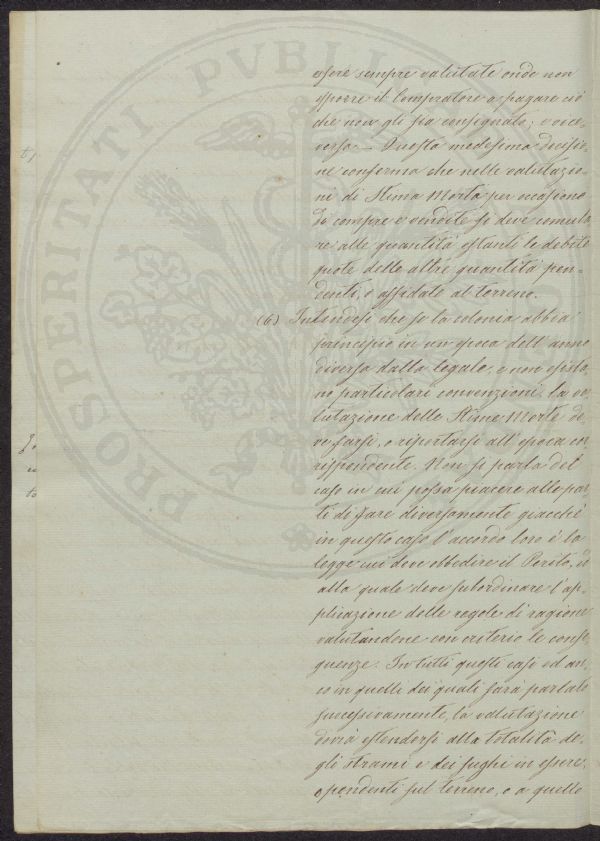 PROSPERITATI PVBLIC
essere sempre valutate onde non
esporre il Compratore a pagare ciò
che non gli sia consegnato; e vice-
versa. — Questa medesima decisio-
ne conferma che nelle valutazio-
ni di Stima Morta per occasione
di compre e vendite si deve cumula
re alle quantità esistenti le debite
quote delle altre quantità pen-
denti, o affidate al terreno.
(6) Intendesi che se la colonia abbia
principio in un epoca dell'anno
diversa dalla legale, e non esista-
no particolari convenzioni, la va-
lutazione delle Stime Morte de-
ve farsi, o riportarsi all'epoca cor
rispondente. Non si parla del
caso in cui possa piacere alle par-
ti di fare diversamente giacchè
in questo caso l'accordo loro è la
legge cui deve obbedire il Perito, e
alla quale deve subordinare l'ap-
plicazione delle regole di ragione
valutandone con criterio le conse-
guenze. In tutti questi casi ed an-
co in quelli dei quali sarà parlato
successivamente, la valutazione
dovrà estendersi alla totalità de-
gli strami e dei sughi in essere,
o pendenti sul terreno, o a quelle